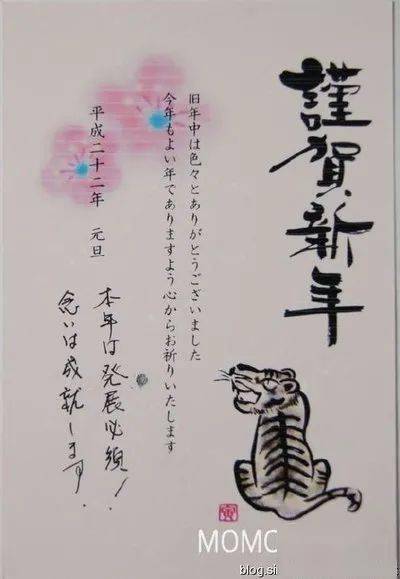 謹賀新年
旧年中は色々とありがとうございました
今年もよい年でありますよう心からお祈りいたします
平成二十二年 元旦
本年は発展必須!
念いは成就します.
寅
MOMC
blog.si